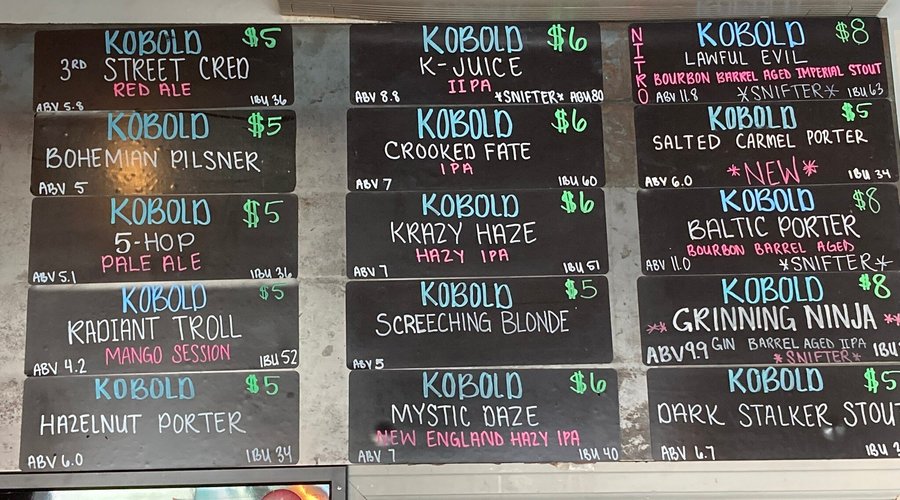 KOBOLD $5
3RD STREET CRED
RED ALE
ABV 5.8 IBU 36
KOBOLD $5
BOHEMIAN PILSNER
ABV 5
KOBOLD $5
5-HOP
PALE ALE
ABV 5.1 IBU 36
KOBOLD $5
RADIANT TROLL
MANGO SESSION
ABV 4.2 IBU 52
KOBOLD $5
HAZELNUT PORTER
ABV 6.0 IBU 34
KOBOLD $6
K-JUICE
IIPA
ABV 8.8 *SNIFTER* ABV 80
KOBOLD $6
CROOKED FATE
IPA
ABV 7 IBU 60
KOBOLD $6
KRAZY HAZE
HAZY IPA
ABV 7 IBU 57
KOBOLD $5
SCREECHING BLONDE
ABV 5
KOBOLD $6
MYSTIC DAZE
NEW ENGLAND HAZY IPA
ABV 7 IBU 40
NITRO
KOBOLD $8
LAWFUL EVIL
BOURBON BARREL AGED IMPERIAL STOUT
ABV 11.8 *SNIFTER* IBU 63
KOBOLD $5
SALTED CARMEL PORTER
ABV 6.0 *NEW* IBU 34
KOBOLD $8
BALTIC PORTER
BOURBON BARREL AGED
ABV 11.0 *SNIFTER*
KOBOLD $8
*GRINNING NINJA*
ABV 9.9 GIN BARREL AGED IIPA IBU
*SNIFTER*
KOBOLD $5
DARK STALKER STOUT
ABV 6.7 IBU